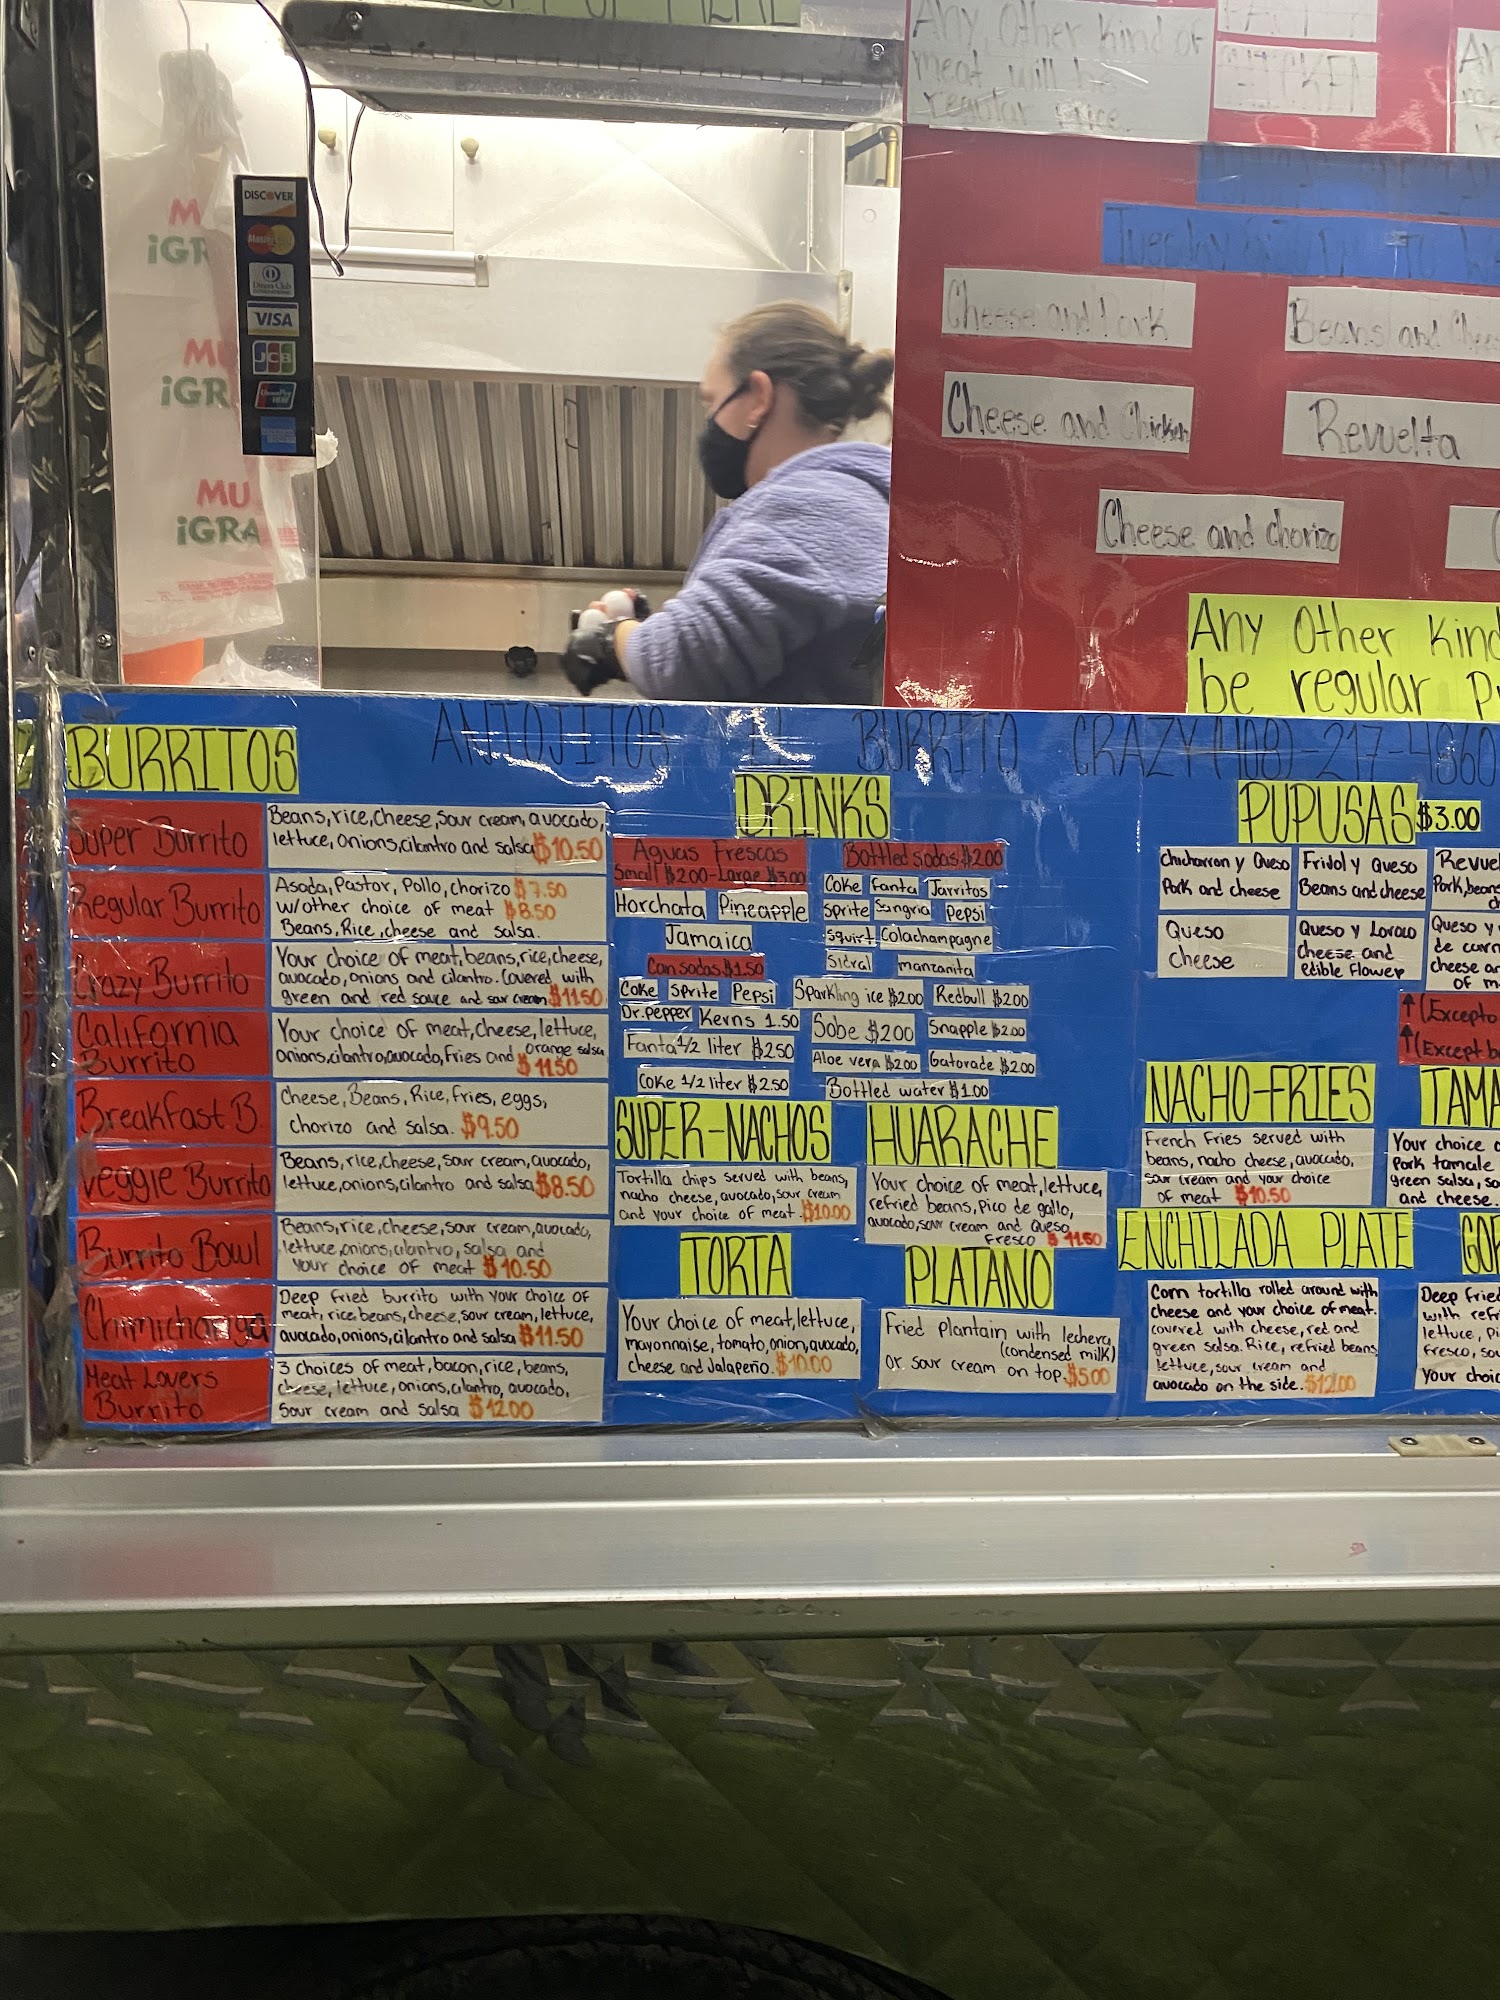 Any Other Kind of
meat will be
regular price.
CHICKEN
DISCOVER
MasterCard
Diners Club
VISA
JCB
UnionPay
MU
iGRA
Tuesday
Cheese and Pork
Beans and Chees
Cheese and Chicken
Revuelta
Cheese and chorizo
Any Other Kind
be regular Pr
ANTOJITOS BURRITO CRAZY (408)-217-4860
BURRITOS
Super Burrito
Beans, rice, cheese, sour cream, avocado,
lettuce, onions, cilantro and salsa $10.50
Regular Burrito
Asada, Pastor, Pollo, chorizo $7.50
w/other choice of meat $8.50
Beans, Rice, cheese and salsa.
Crazy Burrito
Your choice of meat, beans, rice, cheese,
avocado, onions and cilantro. Covered with
green and red sauce and sour cream $11.50
California
Burrito
Your choice of meat, cheese, lettuce,
onions, cilantro, avocado, Fries and orange salsa
$11.50
Breakfast B.
Cheese, Beans, Rice, fries, eggs,
chorizo and salsa. $9.50
Veggie Burrito
Beans, rice, cheese, sour cream, avocado,
lettuce, onions, cilantro and salsa $8.50
Burrito Bowl
Beans, rice, cheese, sour cream, avocado,
lettuce, onions, cilantro, salsa and
your choice of meat $10.50
Chimichanga
Deep fried burrito with your choice of
meat, rice, beans, cheese, sour cream, lettuce,
avocado, onions, cilantro and salsa $11.50
Meat Lovers
Burrito
3 choices of meat, bacon, rice, beans,
cheese, lettuce, onions, cilantro, avocado,
sour cream and salsa $12.00
DRINKS
Aguas Frescas
Small $2.00-Large $3.00
Horchata Pineapple
Jamaica
Can sodas $1.50
Coke Sprite Pepsi
Dr. Pepper Kerns 1.50
Fanta 1/2 liter $2.50
Coke 1/2 liter $2.50
Bottled sodas $2.00
Coke Fanta Jarritos
Sprite Sangria Pepsi
Squirt Colachampagne
Sidral manzanita
Sparkling ice $2.00 Redbull $2.00
Sobe $2.00 Snapple $2.00
Aloe vera $2.00 Gatorade $2.00
Bottled water $1.00
SUPER-NACHOS
Tortilla chips served with beans,
nacho cheese, avocado, sour cream
and your choice of meat. $10.00
HUARACHE
Your choice of meat, lettuce,
refried beans, Pico de gallo,
avocado, sour cream and Queso
Fresco $11.50
TORTA
Your choice of meat, lettuce,
mayonnaise, tomato, onion, avocado,
cheese and Jalapeño. $10.00
PLATANO
Fried plantain with lechera
(condensed milk)
or sour cream on top. $5.00
PUPUSAS $3.00
Chicharron y Queso
Pork and cheese
Fridol y Queso
Beans and cheese
Revuel
Pork, beans
Queso
cheese
Queso y Loroco
Cheese and
edible flower
Queso y
de carn
cheese an
of m
↑(Excepto
↑(Except b
NACHO-FRIES
French Fries served with
beans, nacho cheese, avocado,
sour cream and your choice
of meat $10.50
TAMA
Your choice o
Pork tamale
green salsa, so
and cheese.
ENCHILADA PLATE
Corn tortilla rolled around with
cheese and your choice of meat.
covered with cheese, red and
green salsa. Rice, refried beans,
lettuce, sour cream and
avocado on the side. $12.00
GOR
Deep Fried
with refri
lettuce, Pi
Fresco, sou
Your choic